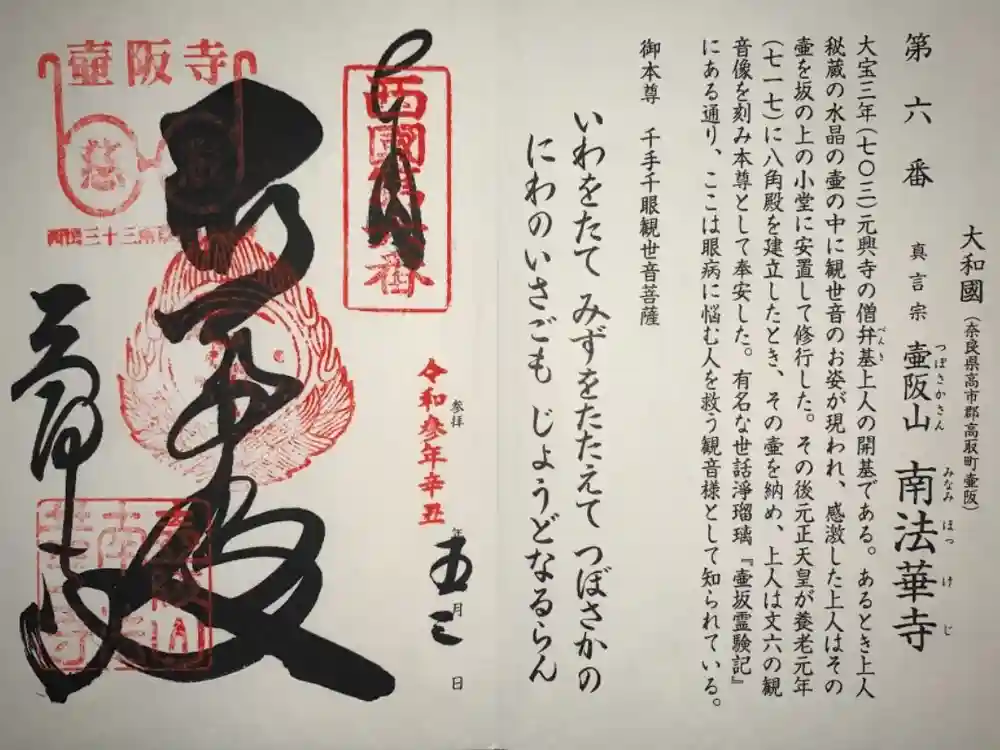 大和國(奈良県高市郡高取町壷阪)
第六番 真言宗 壷阪山 南法華寺
つぼさかさん みなみほっけじ
大宝三年(七〇三)元興寺の僧弁基上人の開基である。あるとき上人
べんき
秘蔵の水晶の壷の中に観世音のお姿が現われ、感激した上人はその
壷を坂の上の小堂に安置して修行した。その後元正天皇が養老元年
(七一七)に八角殿を建立したとき、その壷を納め、上人は丈六の観
音像を刻み本尊として奉安した。有名な世話淨瑠璃『壷坂霊験記』
にある通り、ここは眼病に悩む人を救う観音様として知られている。
御本尊 千手千眼観世音菩薩
いわをたて みずをたたえて つぼさかの
にわのいさごも じょうどなるらん
参拝
令和参年辛丑年五月三日
西國第六番
壷阪寺
慈
西国三十三